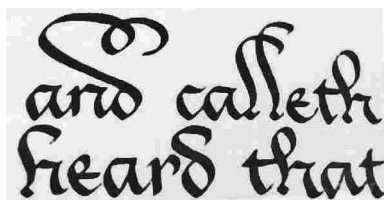 and calleth
heard that